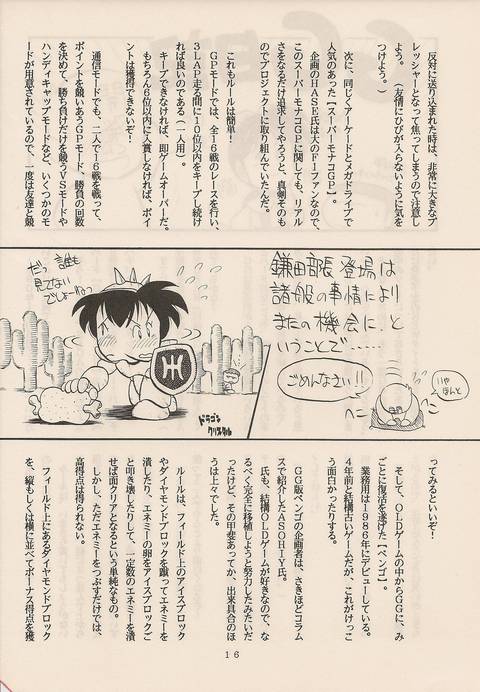 反対に送り込まれた時は、非常に大きなプ
レッシャーとなって焦ってしまうので注意し
よう。(友情にひびが入らないように気を
つけよう。)
次に、同じくアーケードとメガドライブで
人気のあった【スーパーモナコGP】。
企画のHASE氏は大のF1ファンなので、
このスーパーモナコGPに関しても、リアル
さをなるだけ追求してやろうと、真剣そのも
のでプロジェクトに取り組んでいたんだ。
これもルールは簡単!
GPモードでは、全16戦のレースを行い、
3LAP走る間に10位以内をキープし続け
れば良いのである(一人用)。
キープできなければ、即ゲームオーバーだ。
もちろん6位以内に入賞しなければ、ポイ
ントは獲得できないぞ!
通信モードでも、二人で16戦を戦って、
ポイントを競いあうGPモード、勝負の回数
を決めて、勝ち負けだけを競うVSモードや
ハンディキャップモードなど、いくつかのモ
ードが用意されているので、一度は友達と競
鎌田部長登場は
諸般の事情により
またの機会に、と
いうことで……
ごめんなさい!!
いやほんと
だっ誰も
見てない
でしょーねっ
ドラゴン
クリスタル
ってみるといいぞ!
そして、OLDゲームの中からGGに、み
ごとに復活を遂げた【ペンゴ】。
業務用は1986年にデビューしている。
4年前と結構古いゲームだが、これがけっこ
う面白かったりする。
GG版ペンゴの企画者は、さきほどコラム
スで紹介したASOHIY氏。
氏も、結構OLDゲームが好きなので、な
るべく完全に移植しようと努力したみたいだ
ったけど、その甲斐あってか、出来具合のほ
うは上々でした。
ルールは、フィールド上のアイスブロック
やダイヤモンドブロックを蹴ってエネミーを
潰したり、エネミーの卵をアイスブロックご
と叩き壊したりして、一定数のエネミーを潰
せば面クリアとなるという単純なもの。
しかし、ただエネミーをつぶすだけでは、
高得点は得られない。
フィールド上にあるダイヤモンドブロック
を、縦もしくは横に並べてボーナス得点を獲
16